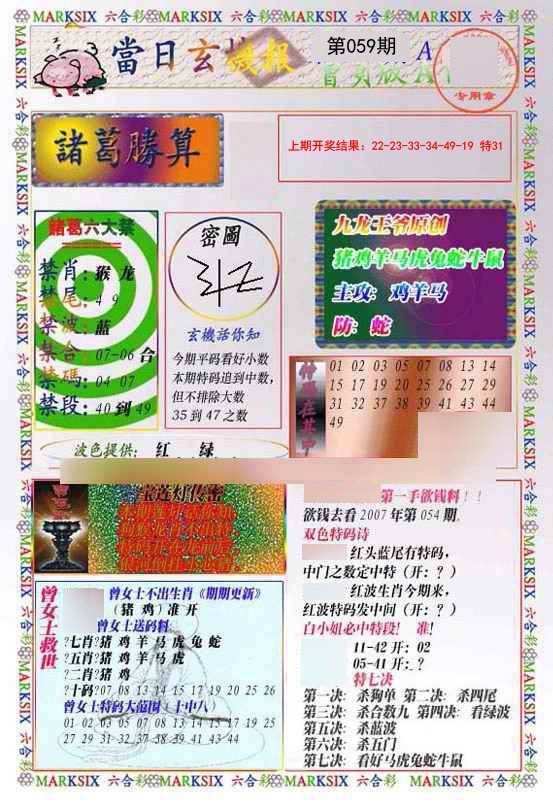 MARKSIX 六合彩 MARKSIX 六合彩 MARKSIX 六合彩 MARKSIX 六合彩
當日玄機报
第059期
A
专用章
諸葛勝算
上期开奖结果：22-23-33-34-49-19 特31
諸葛六大禁
禁肖：猴 龙
禁尾：4 9
禁波：蓝
禁合：07-06 合
禁碼：04 07
禁段：40 到 49
密圖
玄機话你知
今期平码看好小数
本期特码追到中数，
但不排除大数
35 到 47 之数
九龙王爷原创
猪鸡羊马虎兔蛇牛鼠
主攻：鸡羊马
防：蛇
01 02 03 05 07 08 13 14
15 17 19 20 25 26 27 29
31 32 37 38 39 41 43 44
49
波色提供： 红 绿
宝莲灯传密
第一手欲钱料！！
欲钱去看 2007 年第 054 期.
双色特码诗
红头蓝尾有特码，
中门之数定中特（开：？）
红波生肖今期来，
红波特码发中间（开：？）
白小姐必中特段！ 准！
11-42 开：02
05-41 开：？
特七决
第一决：杀狗单 第二决：杀四尾
第三决：杀合数九 第四决：看绿波
第五决：杀蓝波
第六决：杀五门
第七决：看好马虎兔蛇牛鼠
曾女士救世
曾女士不出生肖《期期更新》
（猪 鸡）准 开
曾女士送码料：
?七肖?猪 鸡 羊 马 虎 兔 蛇
?五肖?猪 鸡 羊 马 虎
?二肖?猪 鸡
?十码?07 08 13 14 15 17 19 20 25 26
曾女士特码大范围（十中八）
01 02 03 05 07 08 13 14 15 17 19 25
27 29 31 32 37 38 39 41 43 44
MARKSIX 六合彩 MARKSIX 六合彩 MARKSIX 六合彩 MARKSIX 六合彩